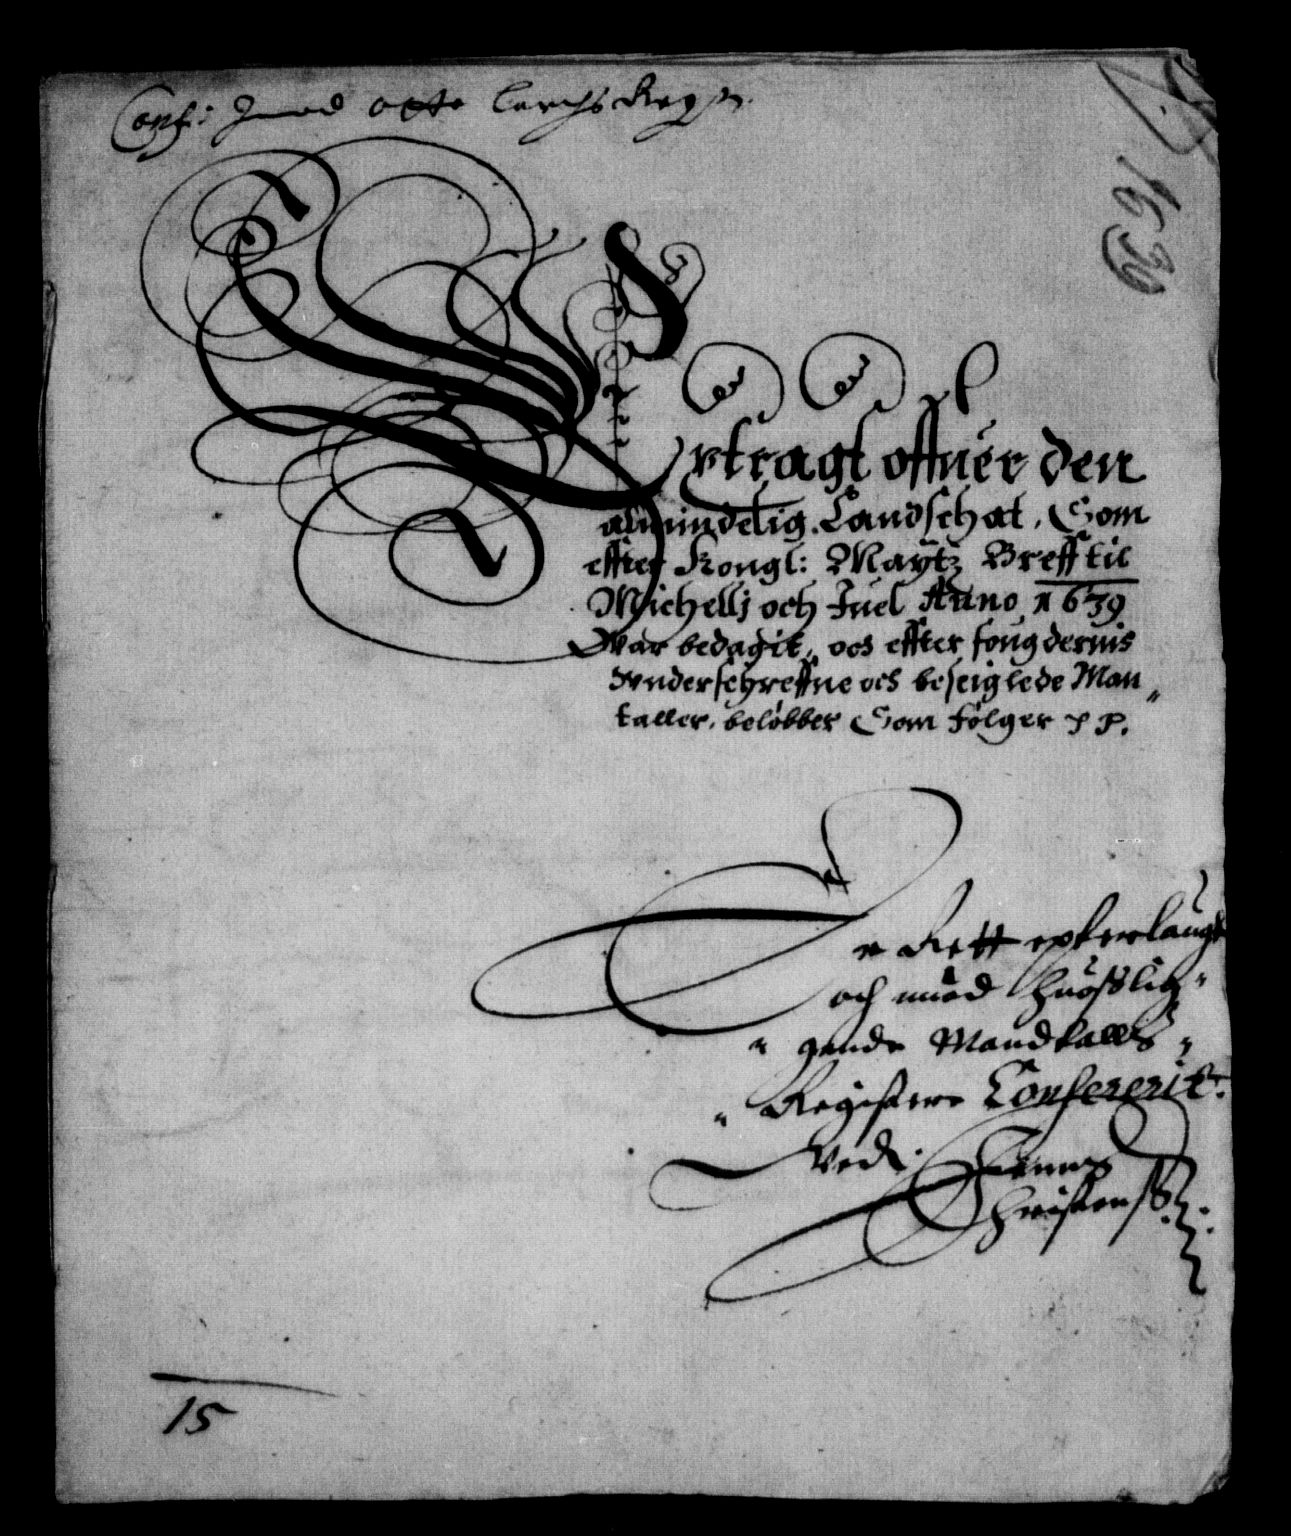 Conf: Imod otte lerchs Regs.
1639
Vrtragt offuer den
almindelig. Landschat, Som
effter Kongl: Maytz Breff til
Michellj och Juel Anno 1639
War bedagit, ocs effter fougdernis
vnderschreffne ocs beseiglede Man„
taller, beløbber Som følger p p.
Er Rett epterlaugt
och med huosslig„
„ gende Mandtalls „
„ Registere Confererit.
Vedt.
Christenss:
15